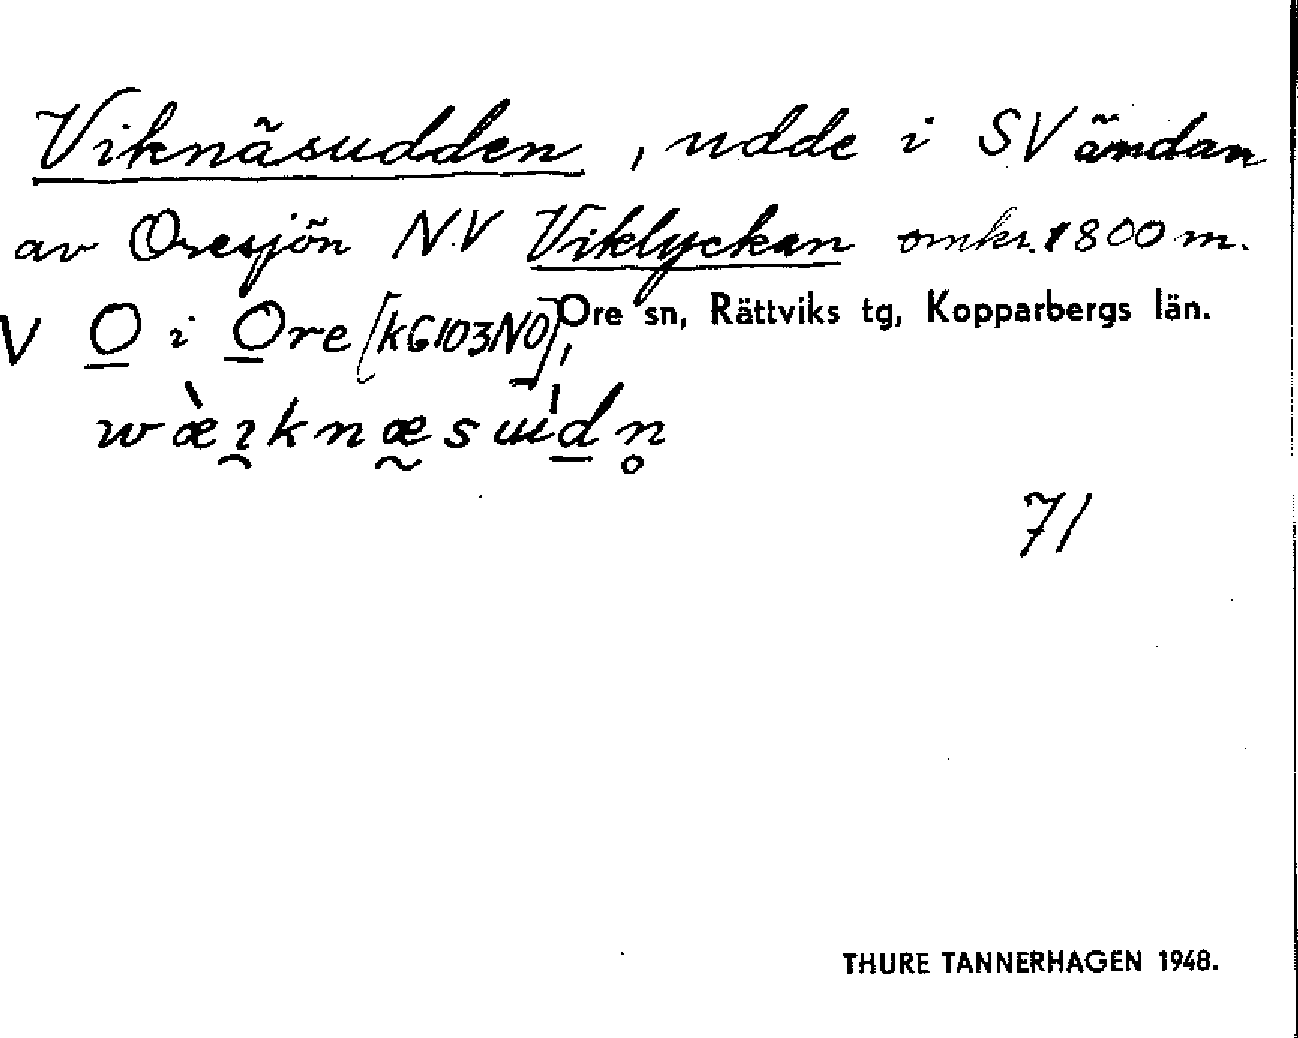 Viknäsudden, udde i SV ändan
av Oresjön NV Viklyckan omkr. 1800 m.
V O i Ore [kG103NO],
Ore sn, Rättviks tg, Kopparbergs län.
71
THURE TANNERHAGEN 1948.